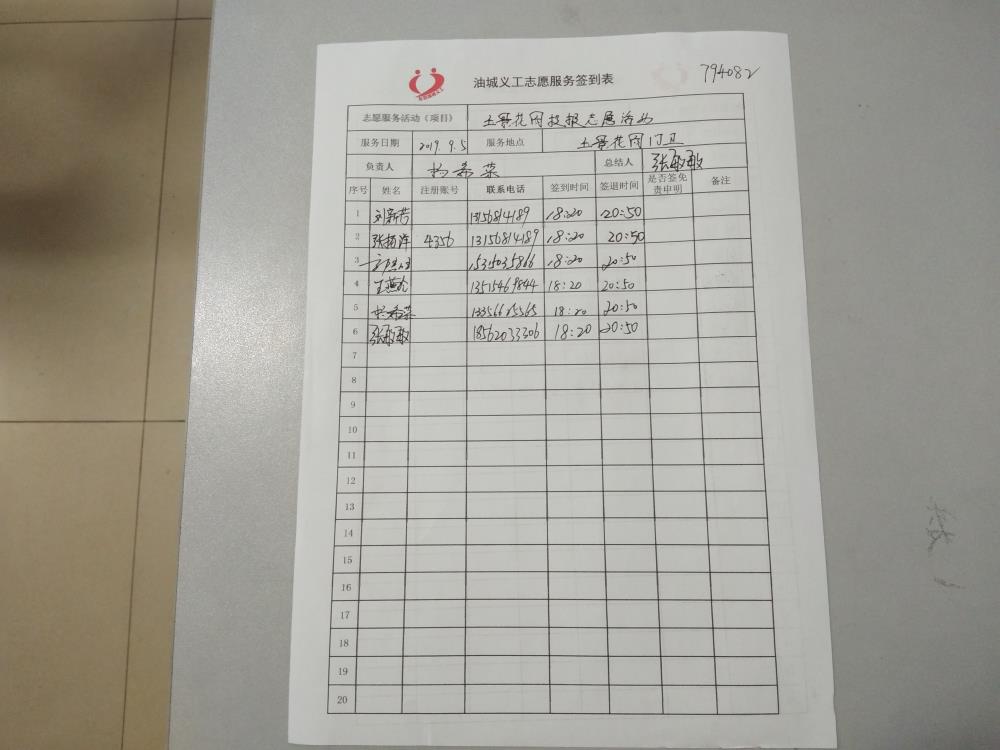 794082
油城义工志愿服务签到表
志愿服务活动（项目）
服务日期 2019.9.5 服务地点
负责人 杨希荣 总结人 张敏敏
序号 姓名 注册账号 联系电话 签到时间 签退时间 是否签免责申明 备注
1 刘新芳 13156814189 18:20 20:50
2 张杨洋 4356 13156814189 18:20 20:50
3 15315035866 18:20 20:50
4 王燕 13515469844 18:20 20:50
5 杨希荣 18:20 20:50
6 张敏敏 18562033306 18:20 20:50
7
8
9
10
11
12
13
14
15
16
17
18
19
20